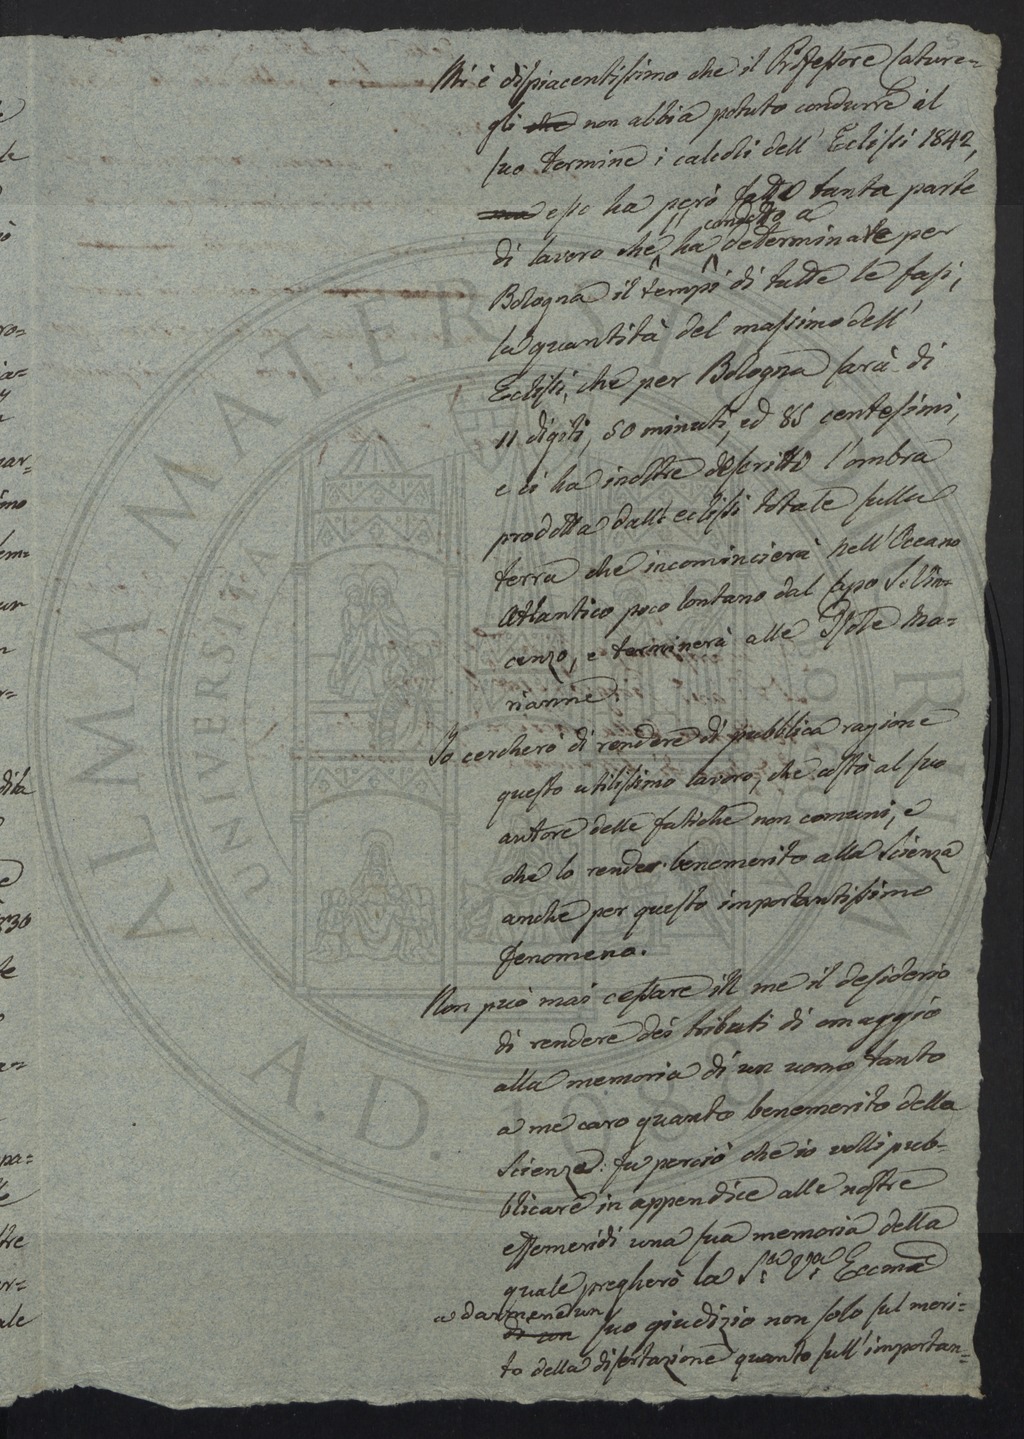 Mi è dispiacentissimo che il Professore Cature=
gli che non abbia potuto condurre al
suo termine i calcoli dell' Eclissi 1842,
ma esso ha però fatto tanta parte
di lavoro che ha condotto a determinare per
Bologna il tempi di tutte le fasi,
la quantità del massimo dell'
Eclissi, che per Bologna sarà di
11 digiti, 50 minuti, ed 85 centesimi,
e ci ha inoltre descritto l'ombra
prodotta dall' eclissi totale sulla
terra che incomincierà nell' Oceano
Atlantico poco lontano dal Capo S. Vin=
cenzo, e terminerà alle Isole Ma=
rianne.
Io cercherò di rendere di pubblica ragione
questo utilissimo lavoro, che costò al suo
autore delle fatiche non comuni, e
che lo rende benemerito alla Scienza
anche per questo importantissimo
fenomeno.
Non può mai cessare in me il desiderio
di rendere dei tributi di omaggio
alla memoria di un uomo tanto
a me caro quanto benemerito della
Scienza: fu perciò che io volli pub=
blicare in appendice alle nostre
effemeridi una sua memoria della
quale pregherò la S.a V.a Eccma
a darmene un
di con suo giudizio non solo sul meri=
to della disertazione quanto sull' importan=